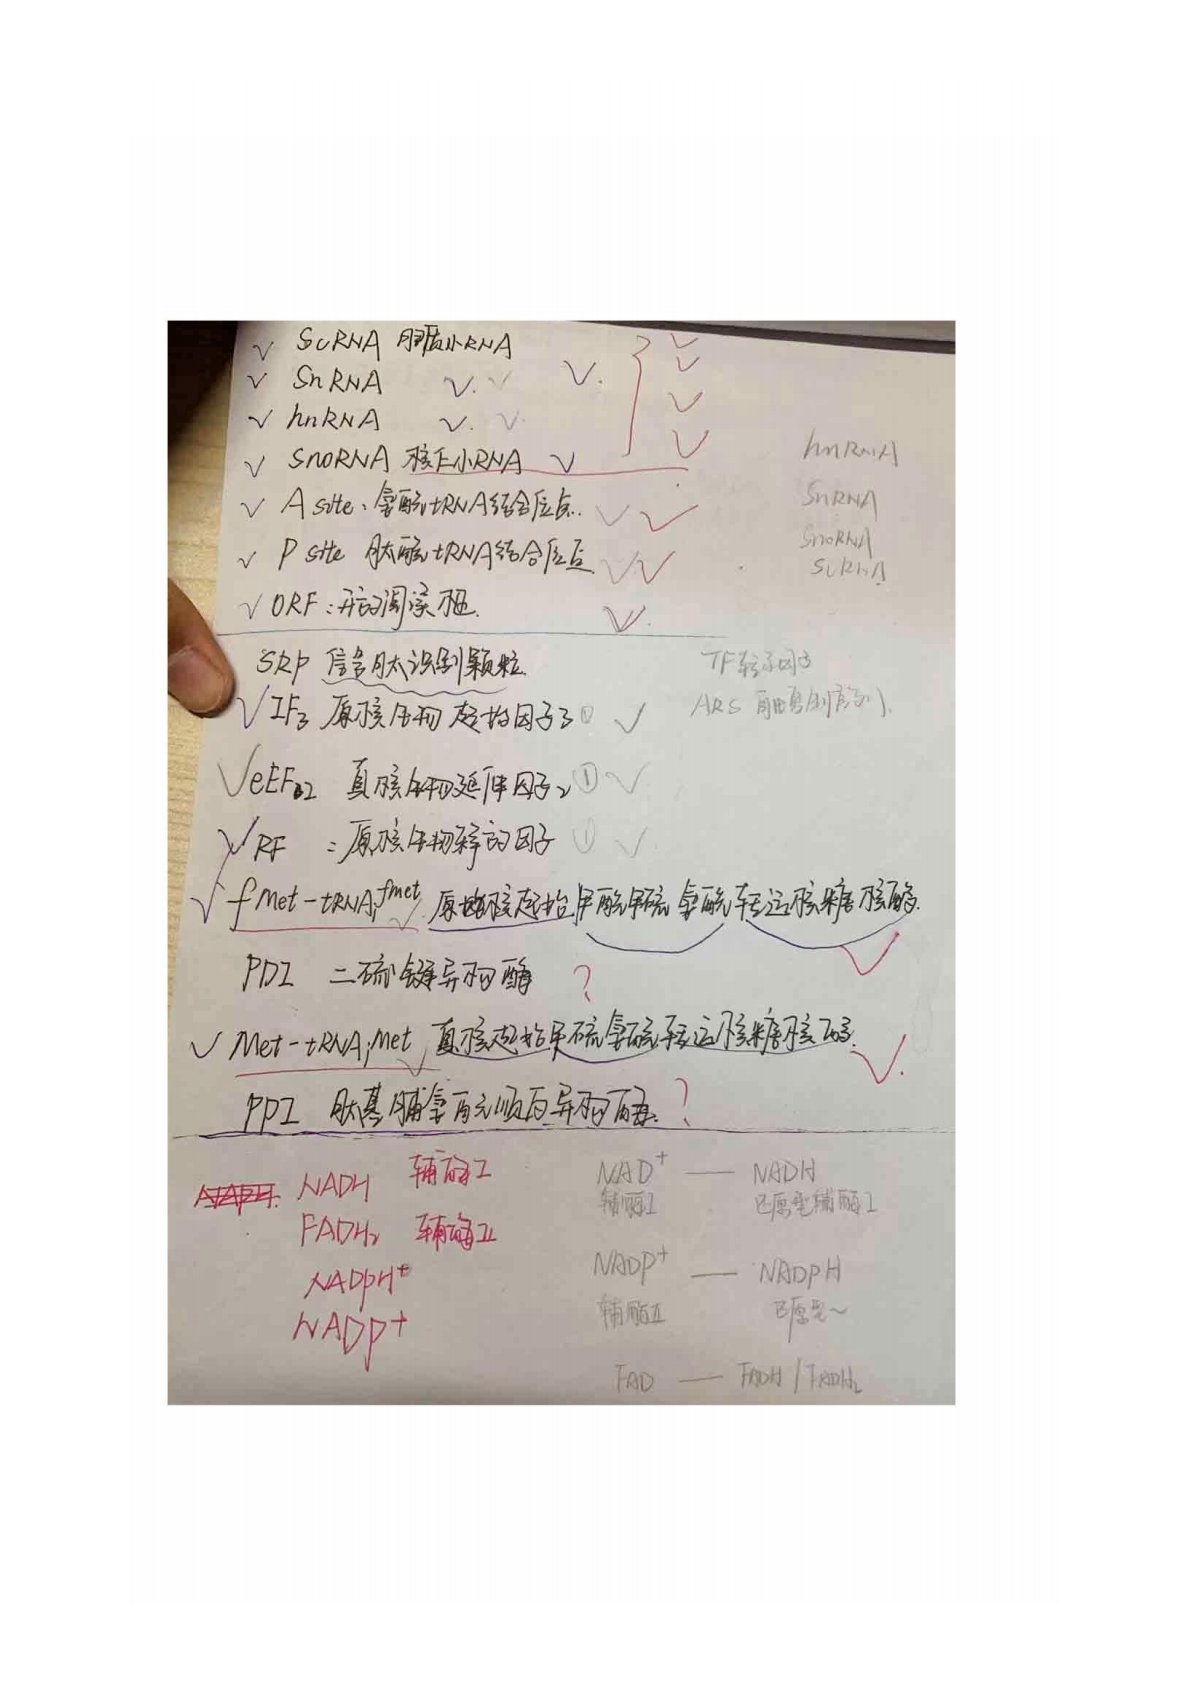 ScRNA 胞质小RNA
SnRNA
hnRNA
SnoRNA 核仁小RNA
A site: 氨酰tRNA结合位点.
P site 肽酰tRNA结合位点
ORF: 开放阅读框.
hnRNA
SnRNA
SnoRNA
ScRNA
SRP 信号肽识别颗粒
IF3 原核生物起始因子3 ①
eEF2 真核生物延伸因子2 ①
RF : 原核生物释放因子 ①
TF 转录因子
ARS 自主复制序列.
fMet-tRNAifmet 原核起始甲酰甲硫氨酰转运核糖核酸.
PDI 二硫键异构酶 ?
Met-tRNAiMet 真核起始甲硫氨酰转运核糖核酸.
PPI 肽基脯氨酰顺反异构酶. ?
NADH 辅酶I
FADH2 辅酶II
NADPH+
NADP+
NAD+ — NADH
辅酶I 还原型辅酶I
NADP+ — NADPH
辅酶II 还原型~
FAD — FADH / FADH2